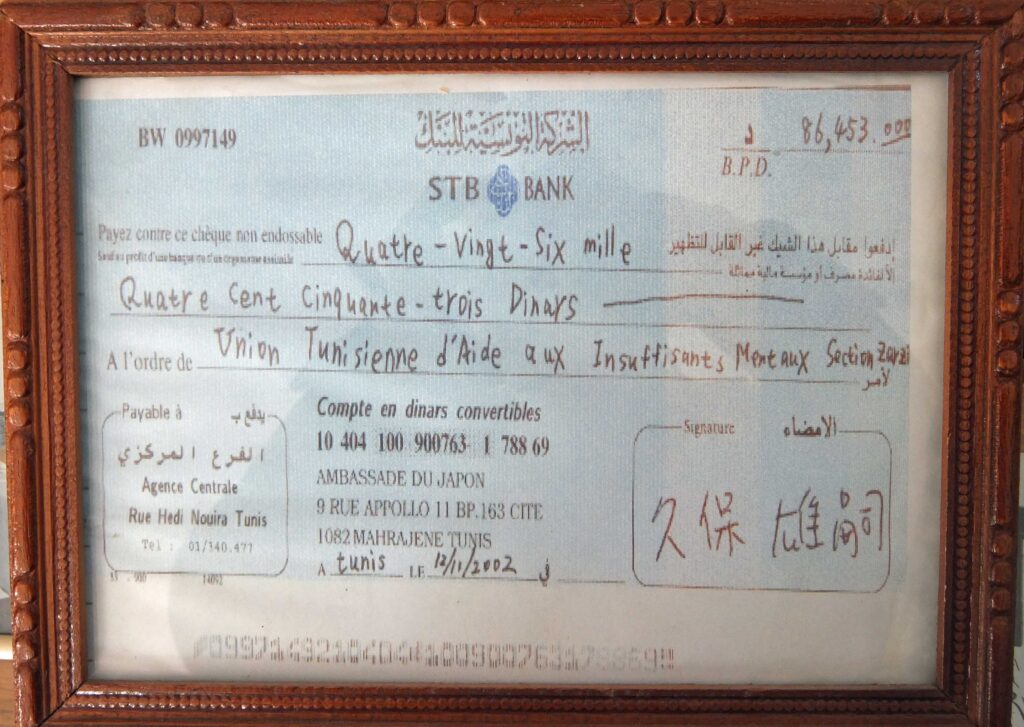 BW 0997149
الشركة التونسية للبنك
STB BANK
د 86,453.000
B.P.D.
Payez contre ce chèque non endossable Quatre-Vingt-Six mille إدفعوا مقابل هذا الشيك غير القابل للتظهير
Sauf au profit d'une banque ou d'un organisme assimilé إلا لفائدة مصرف أو مؤسسة مالية مماثلة
Quatre Cent Cinquante-trois Dinars
A l'ordre de Union Tunisienne d'Aide aux Insuffisants Mentaux Section Zarzi
لأمر
Payable à يدفع بـ
الفرع المركزي
Agence Centrale
Rue Hedi Nouira Tunis
Tel : 01/340.477
Compte en dinars convertibles
10 404 100 900763 1 788 69
AMBASSADE DU JAPON
9 RUE APPOLLO 11 BP.163 CITE
1082 MAHRAJENE TUNIS
A tunis LE 12/11/2002 في
Signature الامضاء
久保 雄司
14092